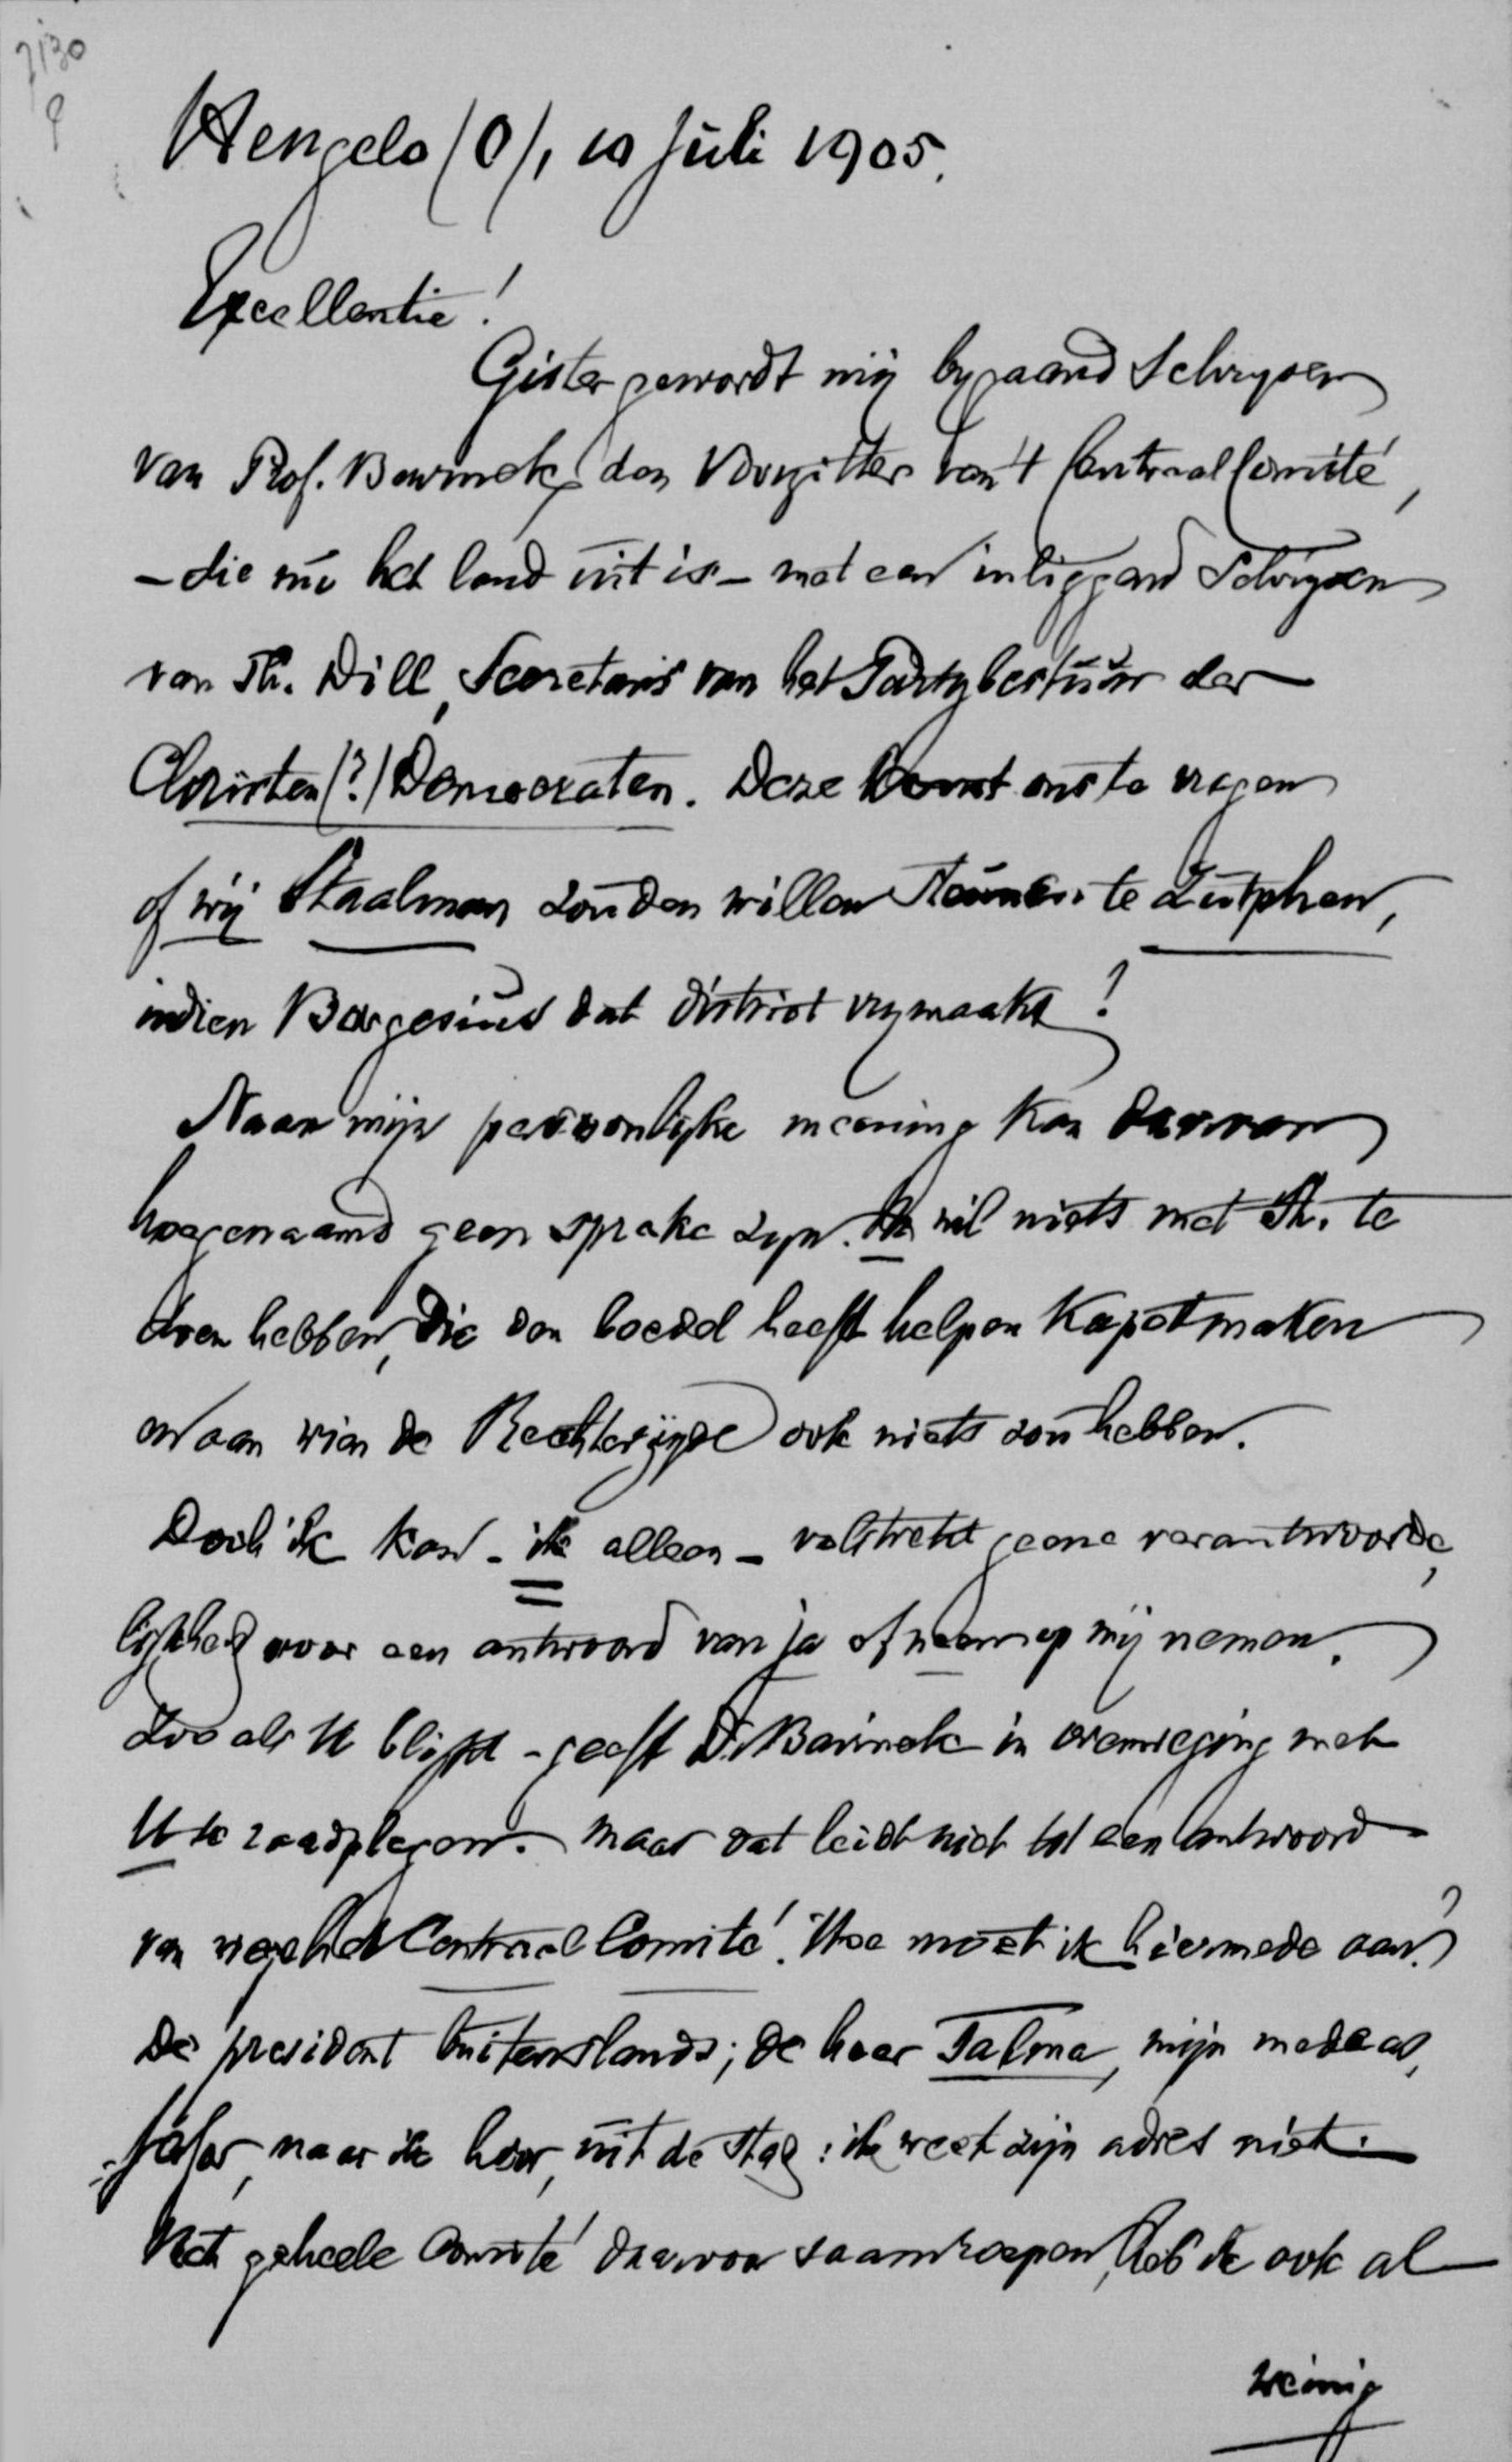 7130
Hengelo (O), 10 Juli 1905.
Excellentie!
Gister gewordt mij bygaand Schryven
van Prof. Bavinck, den Voorzitter van 't Centraal Comité,
– die nu het land uit is – met een inliggend Schrijven
van Th. Dill, Secretaris van het Partybestuur der
Christen (?) Democraten. Deze komt ons te vragen
of wij Staalman zouden willen steunen te Zutphen,
indien Borgesius dat district vrymaakt!
Naar mijn persoonlijke meening kan daarvan
hoegenaamd geen sprake zyn. Ik wil niets met St. te
doen hebben, die den boedel heeft helpen Kapotmaken
en aan wien de Rechterzijde ook niets zou hebben.
Doch ik kan – ik alleen – volstrekt geene verantwoorde,
lijkheid voor een antwoord van ja of neen op mij nemen.
Zooals U blijkt – geeft Dr. Bavinck in overweging met
U te raadplegen. Maar dat leidt niet tot een antwoord
van wege het Centraal Comité. Hoe moet ik hiermede aan?
De president buitenslands; de heer Talma, mijn mede as,
sessor, naar ik hoor, uit de stad: ik weet zijn adres niet.
Het geheele Comité daarvoor saamroepen, heb ik ook al
weinig